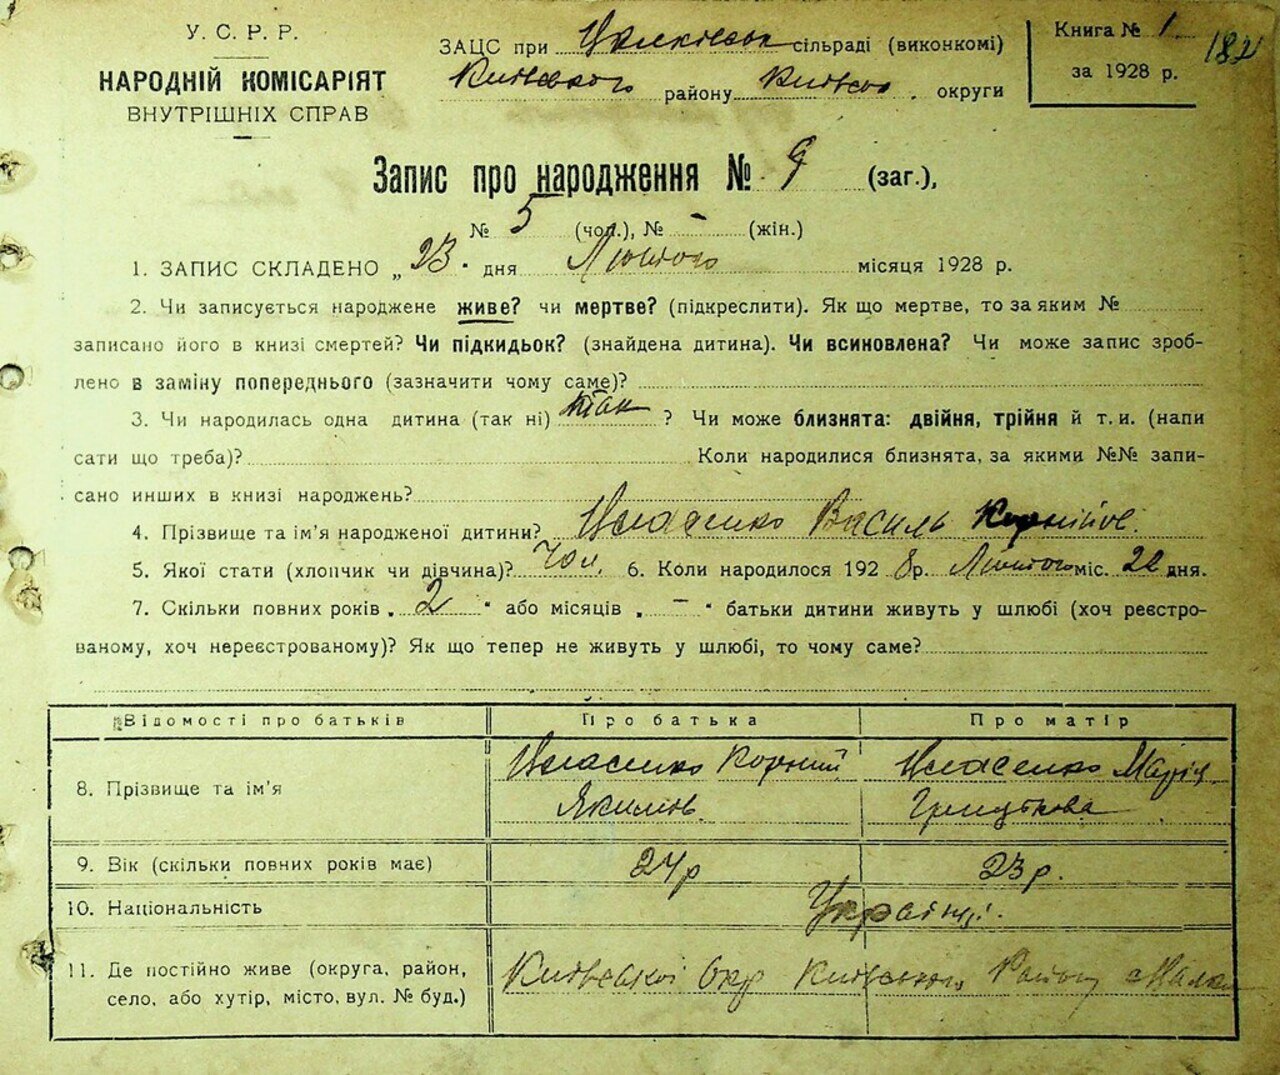 У. С. Р. Р.
НАРОДНІЙ КОМІСАРІЯТ
ВНУТРІШНІХ СПРАВ
ЗАЦС при сільраді (виконкомі)
Київського району Київськ. округи
Книга № 1
за 1928 р.
182
Запис про народження № 9 (заг.),
№ 5 (чол.), № - (жін.)
1. ЗАПИС СКЛАДЕНО „23" дня Лютого місяця 1928 р.
2. Чи записується народжене живе? чи мертве? (підкреслити). Як що мертве, то за яким №
записано його в книзі смертей? Чи підкидьок? (знайдена дитина). Чи всиновлена? Чи може запис зроб-
лено в заміну попереднього (зазначити чому саме)?
3. Чи народилась одна дитина (так ні) так ? Чи може близнята: двійня, трійня й т. и. (напи
сати що треба)? Коли народилися близнята, за якими №№ запи-
сано инших в книзі народжень?
4. Прізвище та ім'я народженої дитини? Василь
5. Якої стати (хлопчик чи дівчина)? Чол. 6. Коли народилося 192 8 р. Лютого міс. дня.
7. Скільки повних років „ 2 " або місяців „ - " батьки дитини живуть у шлюбі (хоч реєстро-
ваному, хоч нереєстрованому)? Як що тепер не живуть у шлюбі, то чому саме?
Відомості про батьків Про батька Про матір
8. Прізвище та ім'я Корній Марія
Якимов.
9. Вік (скільки повних років має) 24 р 23 р.
10. Національність Українці.
11. Де постійно живе (округа, район,
село, або хутір, місто, вул. № буд.) Київської Окр Київського Району